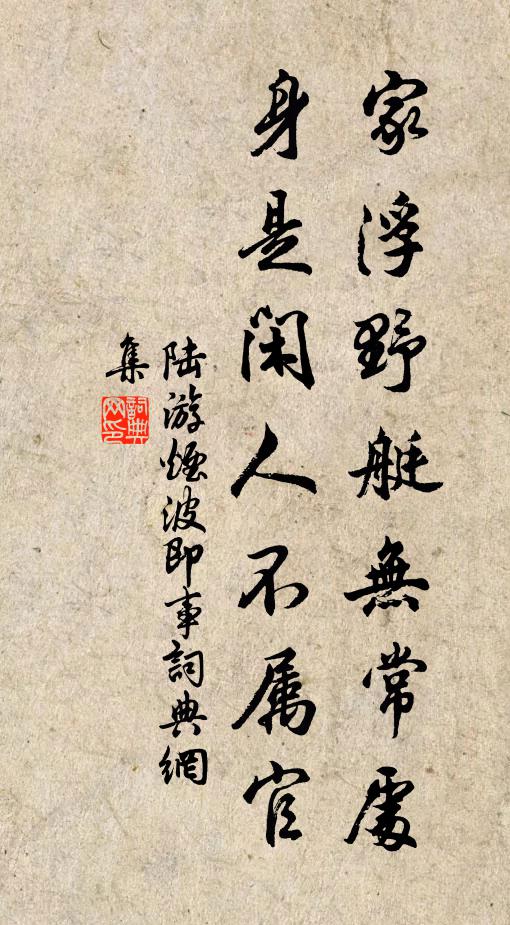 家浮野艇無常處
身是閑人不属官
陆游烟波即事詞典網
集
詞典
网印